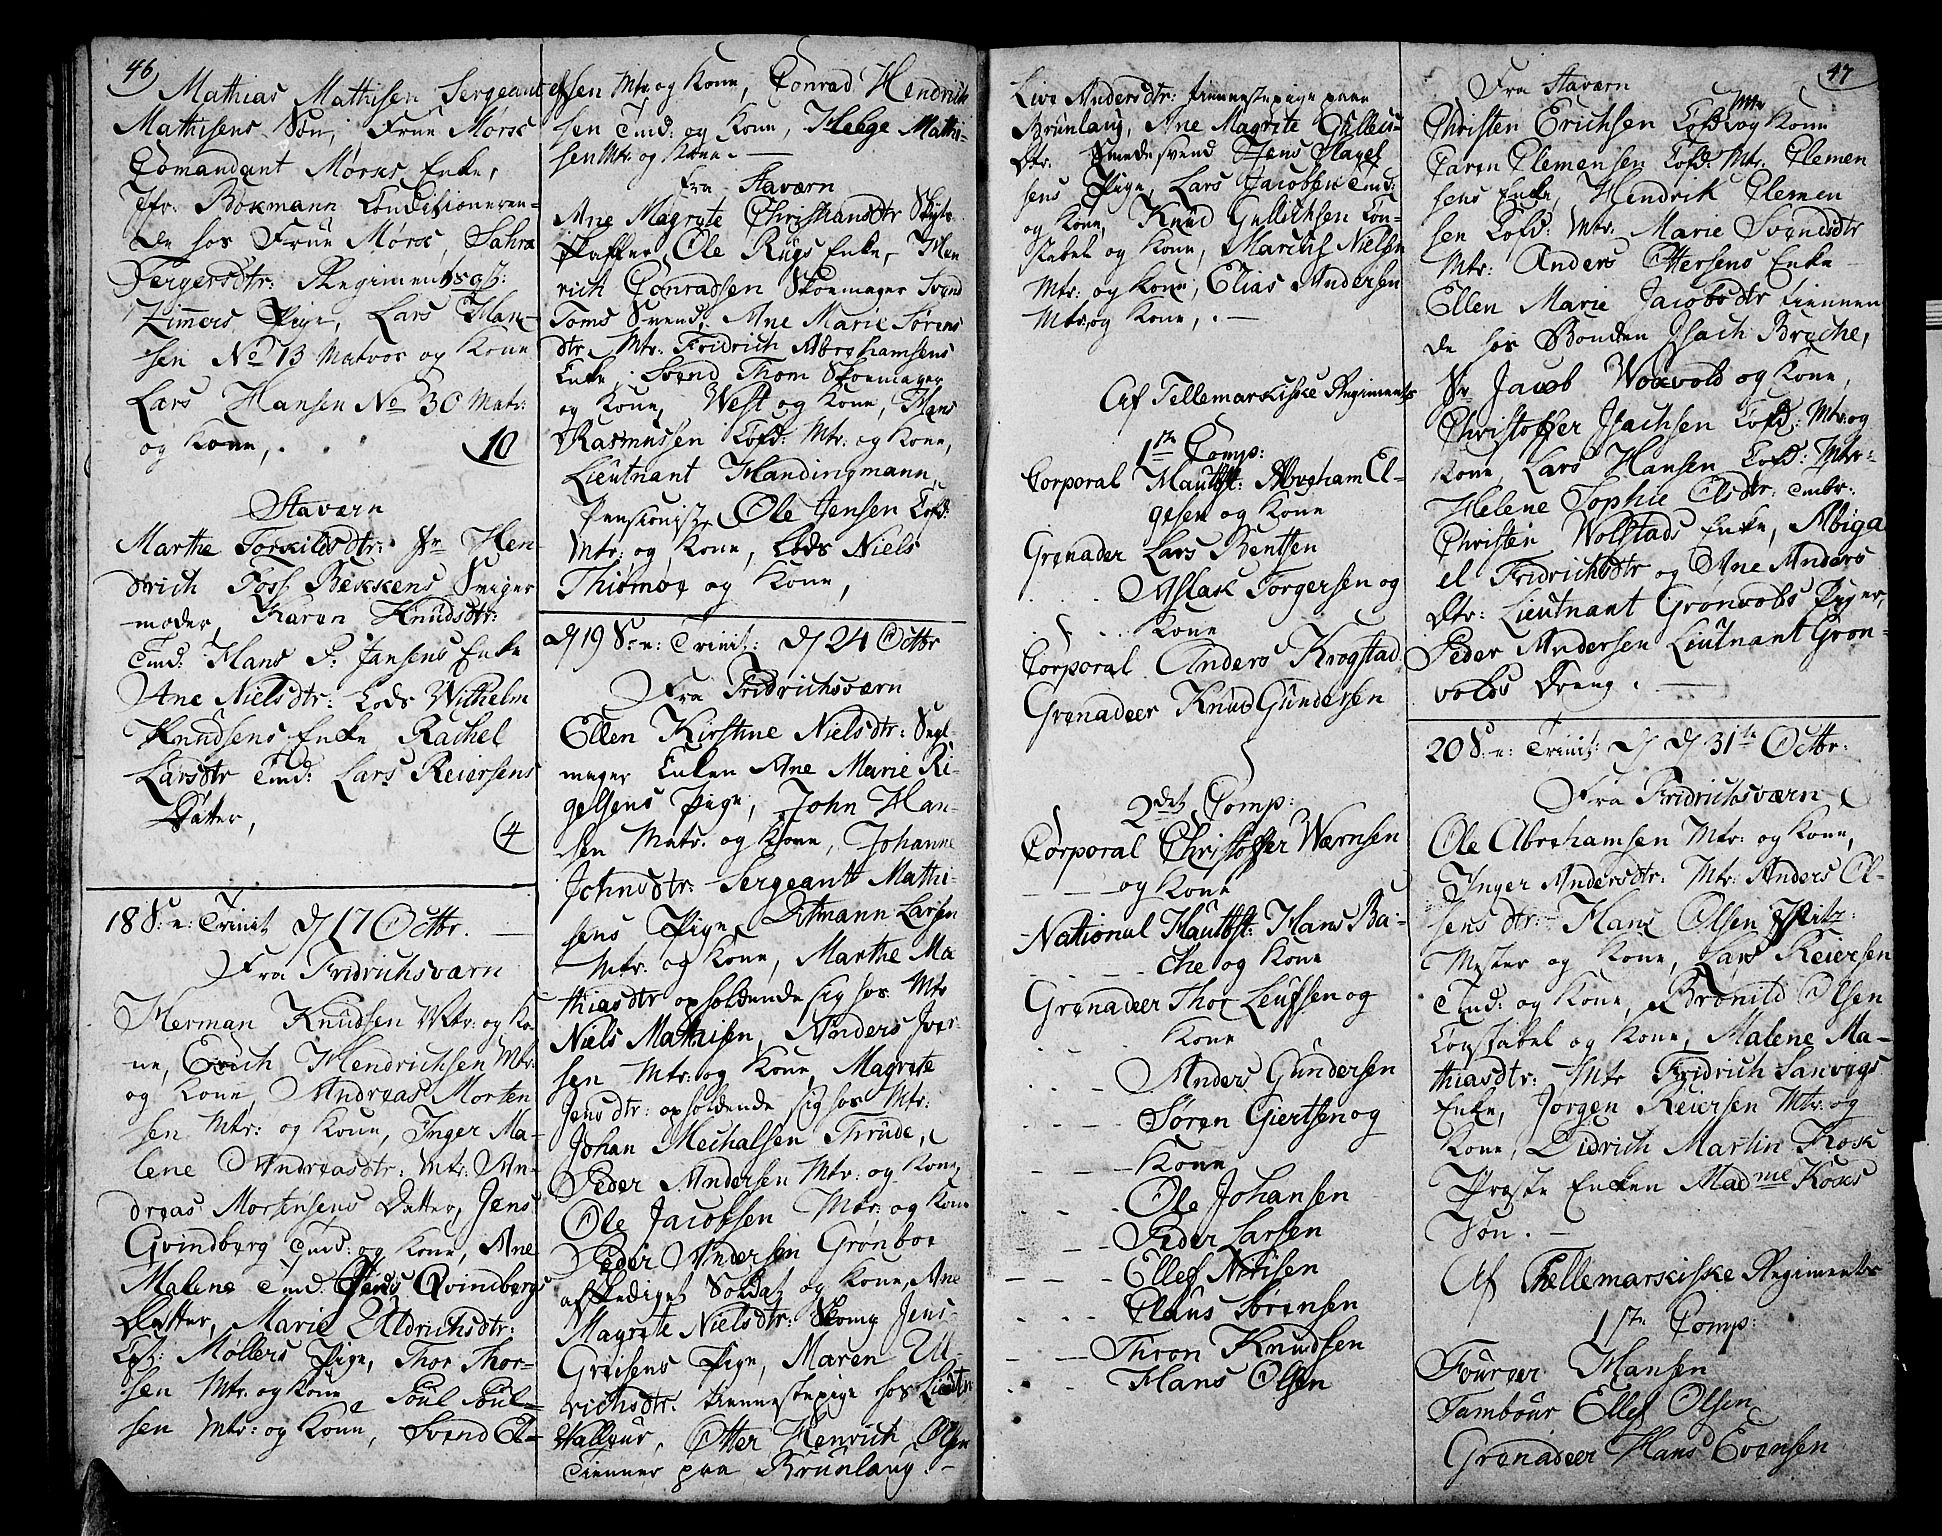 46
Mathias Mathisen Sergeant
Mathisens Søn, Frue Mørsc
Comandant Mørses Enke,
Jfr: Boxmann Conditioneren-
de hos Frue Mørsc, Sahra
Tergersdtr: Regiments
Zimers Pige, Lars Han-
sen No 13 Matros og Kone
Lars Hansen No 30 Matr:
og Kone,
10
Staværn
Marthe Torkildsdtr: Sr Hen-
drich Foss Bekkens Sviger
moder, Karen Knudsdtr:
Tmd: Hans P: Jansens Enke
Ane Nielsdtr: Lods Wilhelm
Knudsens Enke Rachel
Larsdtr Tmd: Lars Reiersens
Datter,
4
18 S: e: Trinit d 17 Octbr.
Fra Fridrichsværn
Herman Knudsen Mtr: og Ko
ne, Erich Hendrichsen Mtr:
og Kone, Andreas Morten
sen Mtr: og Kone, Inger Ma-
lene Andreasdtr: Mtr: An-
dreas Mortensens Datter, Jens
Qvindberg Tmd: og Kone, Ane
Malene Tmd: Jens Qvindbergs
Datter, Marie Uldrichsdtr:
Cpt: Møllers Pige, Thor Thor-
sen Mtr: og Kone Poul Poul-
sen Mtr: og Kone, Svend El-
efsen Mtr: og Kone, Conrad Hendrich
sen Tmd: og Kone, Helge Mathi-
sen Mtr: og Kone.
Fra Staværn
Ane Magrete Christiansdtr Skyds
skaffer Ole Rygs Enke, Hen
rich Conradsen Skoemager Svend
Toms Svend, Ane Marie Sørens
dtr Mtr: Fridrich Abrahamsens
Enke, Svend Thom Skoemager
og Kone, West og Kone, Hans
Rasmussen Cofd: Mtr: og Kone,
Lieutnant Handingmann,
Pensionist, Ole Jensen Cofd:
Mtr: og Kone, Lods Niels
Thiømøe og Kone,
d 19 S: e: Trinit: d 24 Octbr
Fra Fridrichsværn
Ellen Kirstine Nielsdtr: Segl-
mager Enken Ane Marie Ri-
gelsens Pige, John Han-
sen Matr. og Kone, Johanne
Johnsdtr: Sergeantt Mathi-
sens Pige, Ditmann Larsen
Mtr. og Kone, Marthe Ma
thiasdtr opholdende sig hos Mtr
Niels Mathisen, Anders Iver
sen Mtr: og Kone, Magrete
Jensdtr: opholdende sig hos Mtr:
Johan Mechalsen Thrude,
Peder Andersen Mtr: og Kone,
Ole Jacobsen Mtr: og Kone
Peder Andersen Grønboe
afskediget Soldat og Kone, Ane
Magrete Nielsdtr: Skomg Jens
Grisens Pige, Maren Ul-
richsdtr. tienestepige hos Lieutn
Valleur, Otter Henrich Olsen
Tienner paa Brunlaug.
47
Live Andersdtr: tiennestepige paa
Brunlaug, Ane Magrete Gulleu-
dtr. Smedesvend Jens Olagef
sens Pige, Lars Jacobsen Tmd:
og Kone, Knud Gullichsen Con-
stabel og Kone, Marcus Nielsen
Mtr: og Kone, Elias Andersen
Mtr: og Kone,
Af Tellemarkiske Regiments
1ste Comp:
Corporal Mautbst: Abraham El-
gesen og Kone
Grenader Lars Bentsen
Aslak Torgersen og
Kone
Corporal Anders Krogstad
Grenadeer Knud Gundersen
2det Comp:
Corporal Christoffer Wærnsen
og Kone
National Mautbst: Hans Ba-
che og Kone
Grenadeer Thor Leufsen og
Kone
Anders Gundersen
Søren Giertsen og
Kone
Ole Johansen
Peder Larsen
Ellef Nirisen
Claus Sørensen
Thron Knudsen
Hans Olsen
Fra Staværn
Christen Erichsen Cofd: Mtr og Kone
Caren Clemensen Cofd: Mtr: Clemen
sens Enke, Hendrik Clemen
sen Cofd: Mtr. Marie Svendsdtr
Mtr: Anders Ottersens Enke
Ellen Marie Jacobsdtr tiennen
de hos Bonden Isach Breche,
Sr Jacob Woxvold og Kone,
Christoffer Isachsen Cofd: Mtr: og
Kone, Lars Hansen Cofd: Mtr:
Helene Sophie Olsdtr: Tmbr:
Christen Wolstads Enke, Abiga
el Fridrichsdtr og Ane Anders
dtr: Lieutnant Grønvolds Piger,
Peder Andersen Lieutnant Grøn-
volds Dreng.
20 S: e: Trinit: d 31te Octbr:
Fra Fridrichsværn
Ole Abrahamsen Mtr: og Kone,
Inger Andersdtr: Mtr: Anders Ol-
sens dtr: Hans Olsen Spitz:
Mester og Kone, Lars Reiersen
Tmd: og Kone, Brønild Olsen
Constabel og Kone, Malene Ma-
thiasdtr: Mtr Fridrich Sanvigs
Enke, Jørgen Reiersen Mtr: og
Kone, Didrich Martin Kosk
Præste Enken Madme Koxs
Søn.
Af Thellemarkiske Regiments
1ste Comp:
Fourer Hansen
Tambour Ellef Olsen
Grenadeer Hans Evensen